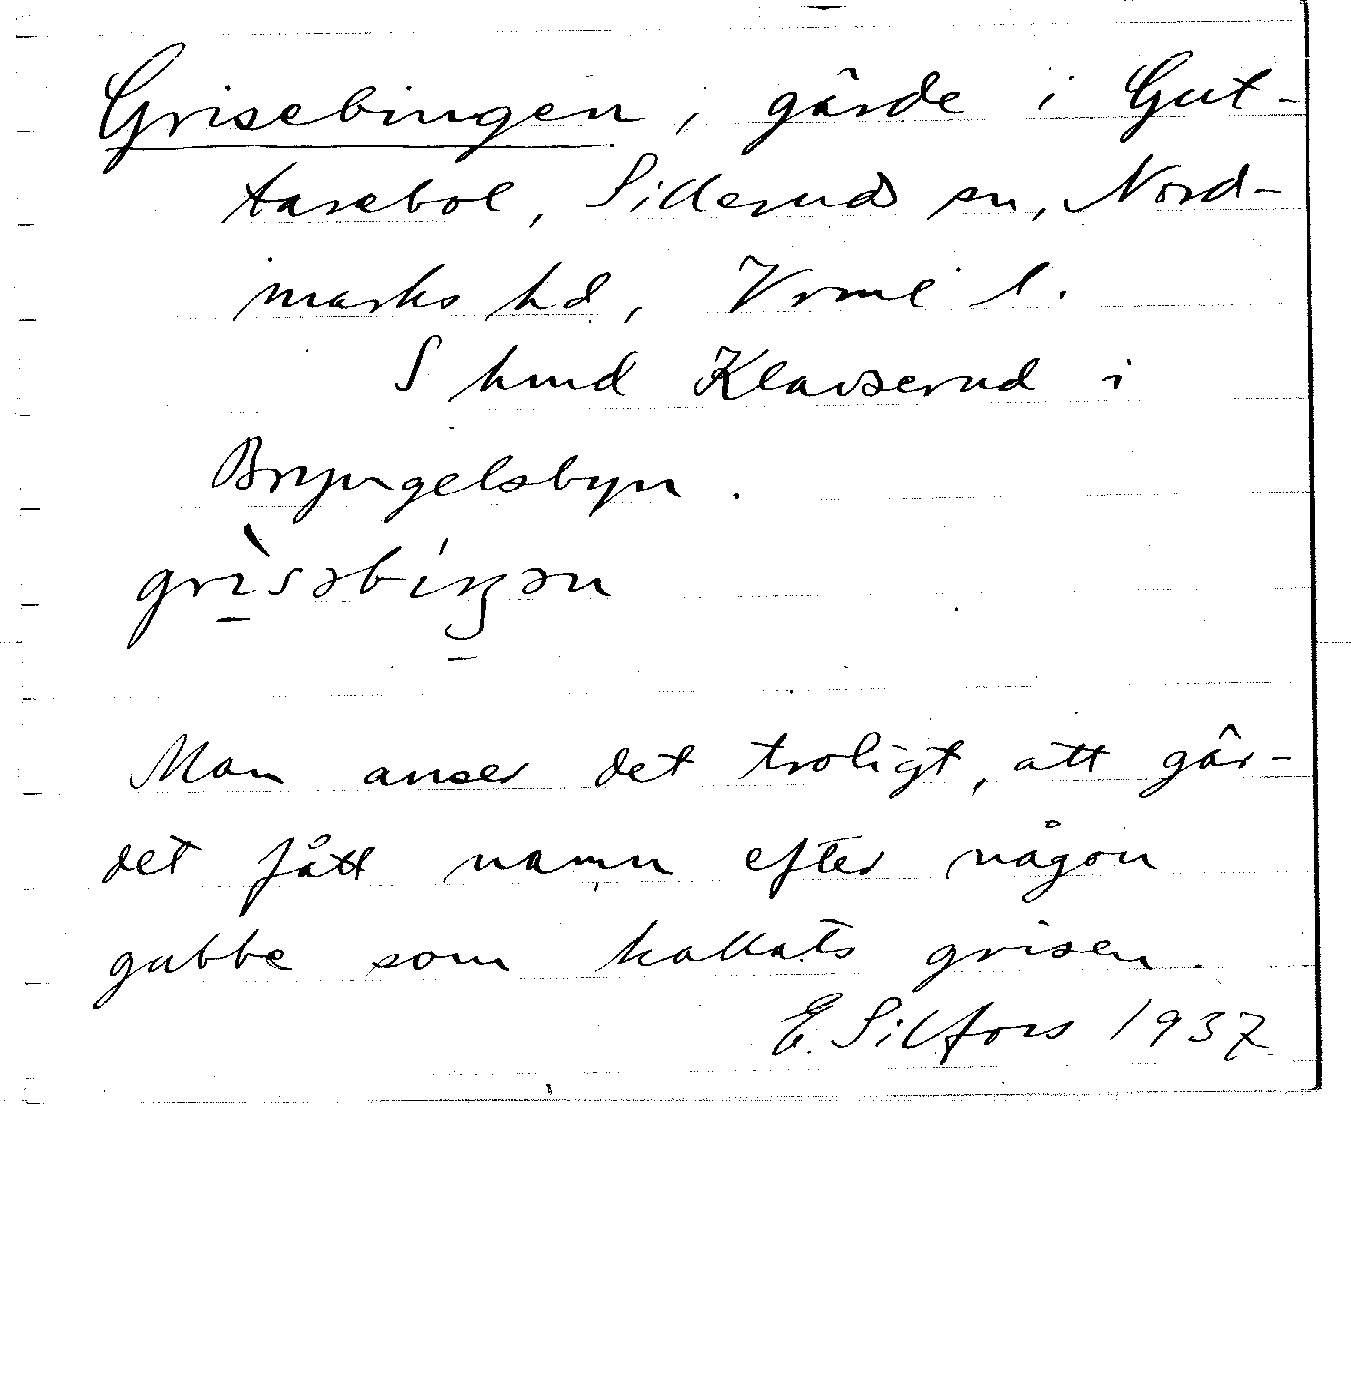 Grisebingen, gärde i Gut-
tarebol, Silleruds sn, Nord-
marks hd, Vrml l.
S hmd Klavserud i
Bryngelsbyn.
grìsəbíŋən
Man anser det troligt, att gär-
det fått namn efter någon
gubbe som kallats grisen.
E. Silfors 1937